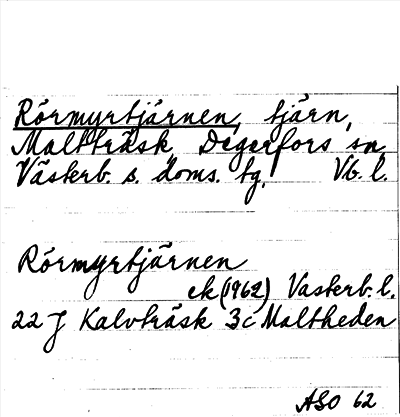 Rörmyrtjärnen, tjärn,
Maltträsk Degerfors sn
Västerb. s. doms. tg. Vb. l.
Rörmyrtjärnen
ek (1962) Vasterb. l.
22 J Kalvträsk 3c Maltheden
ASO 62